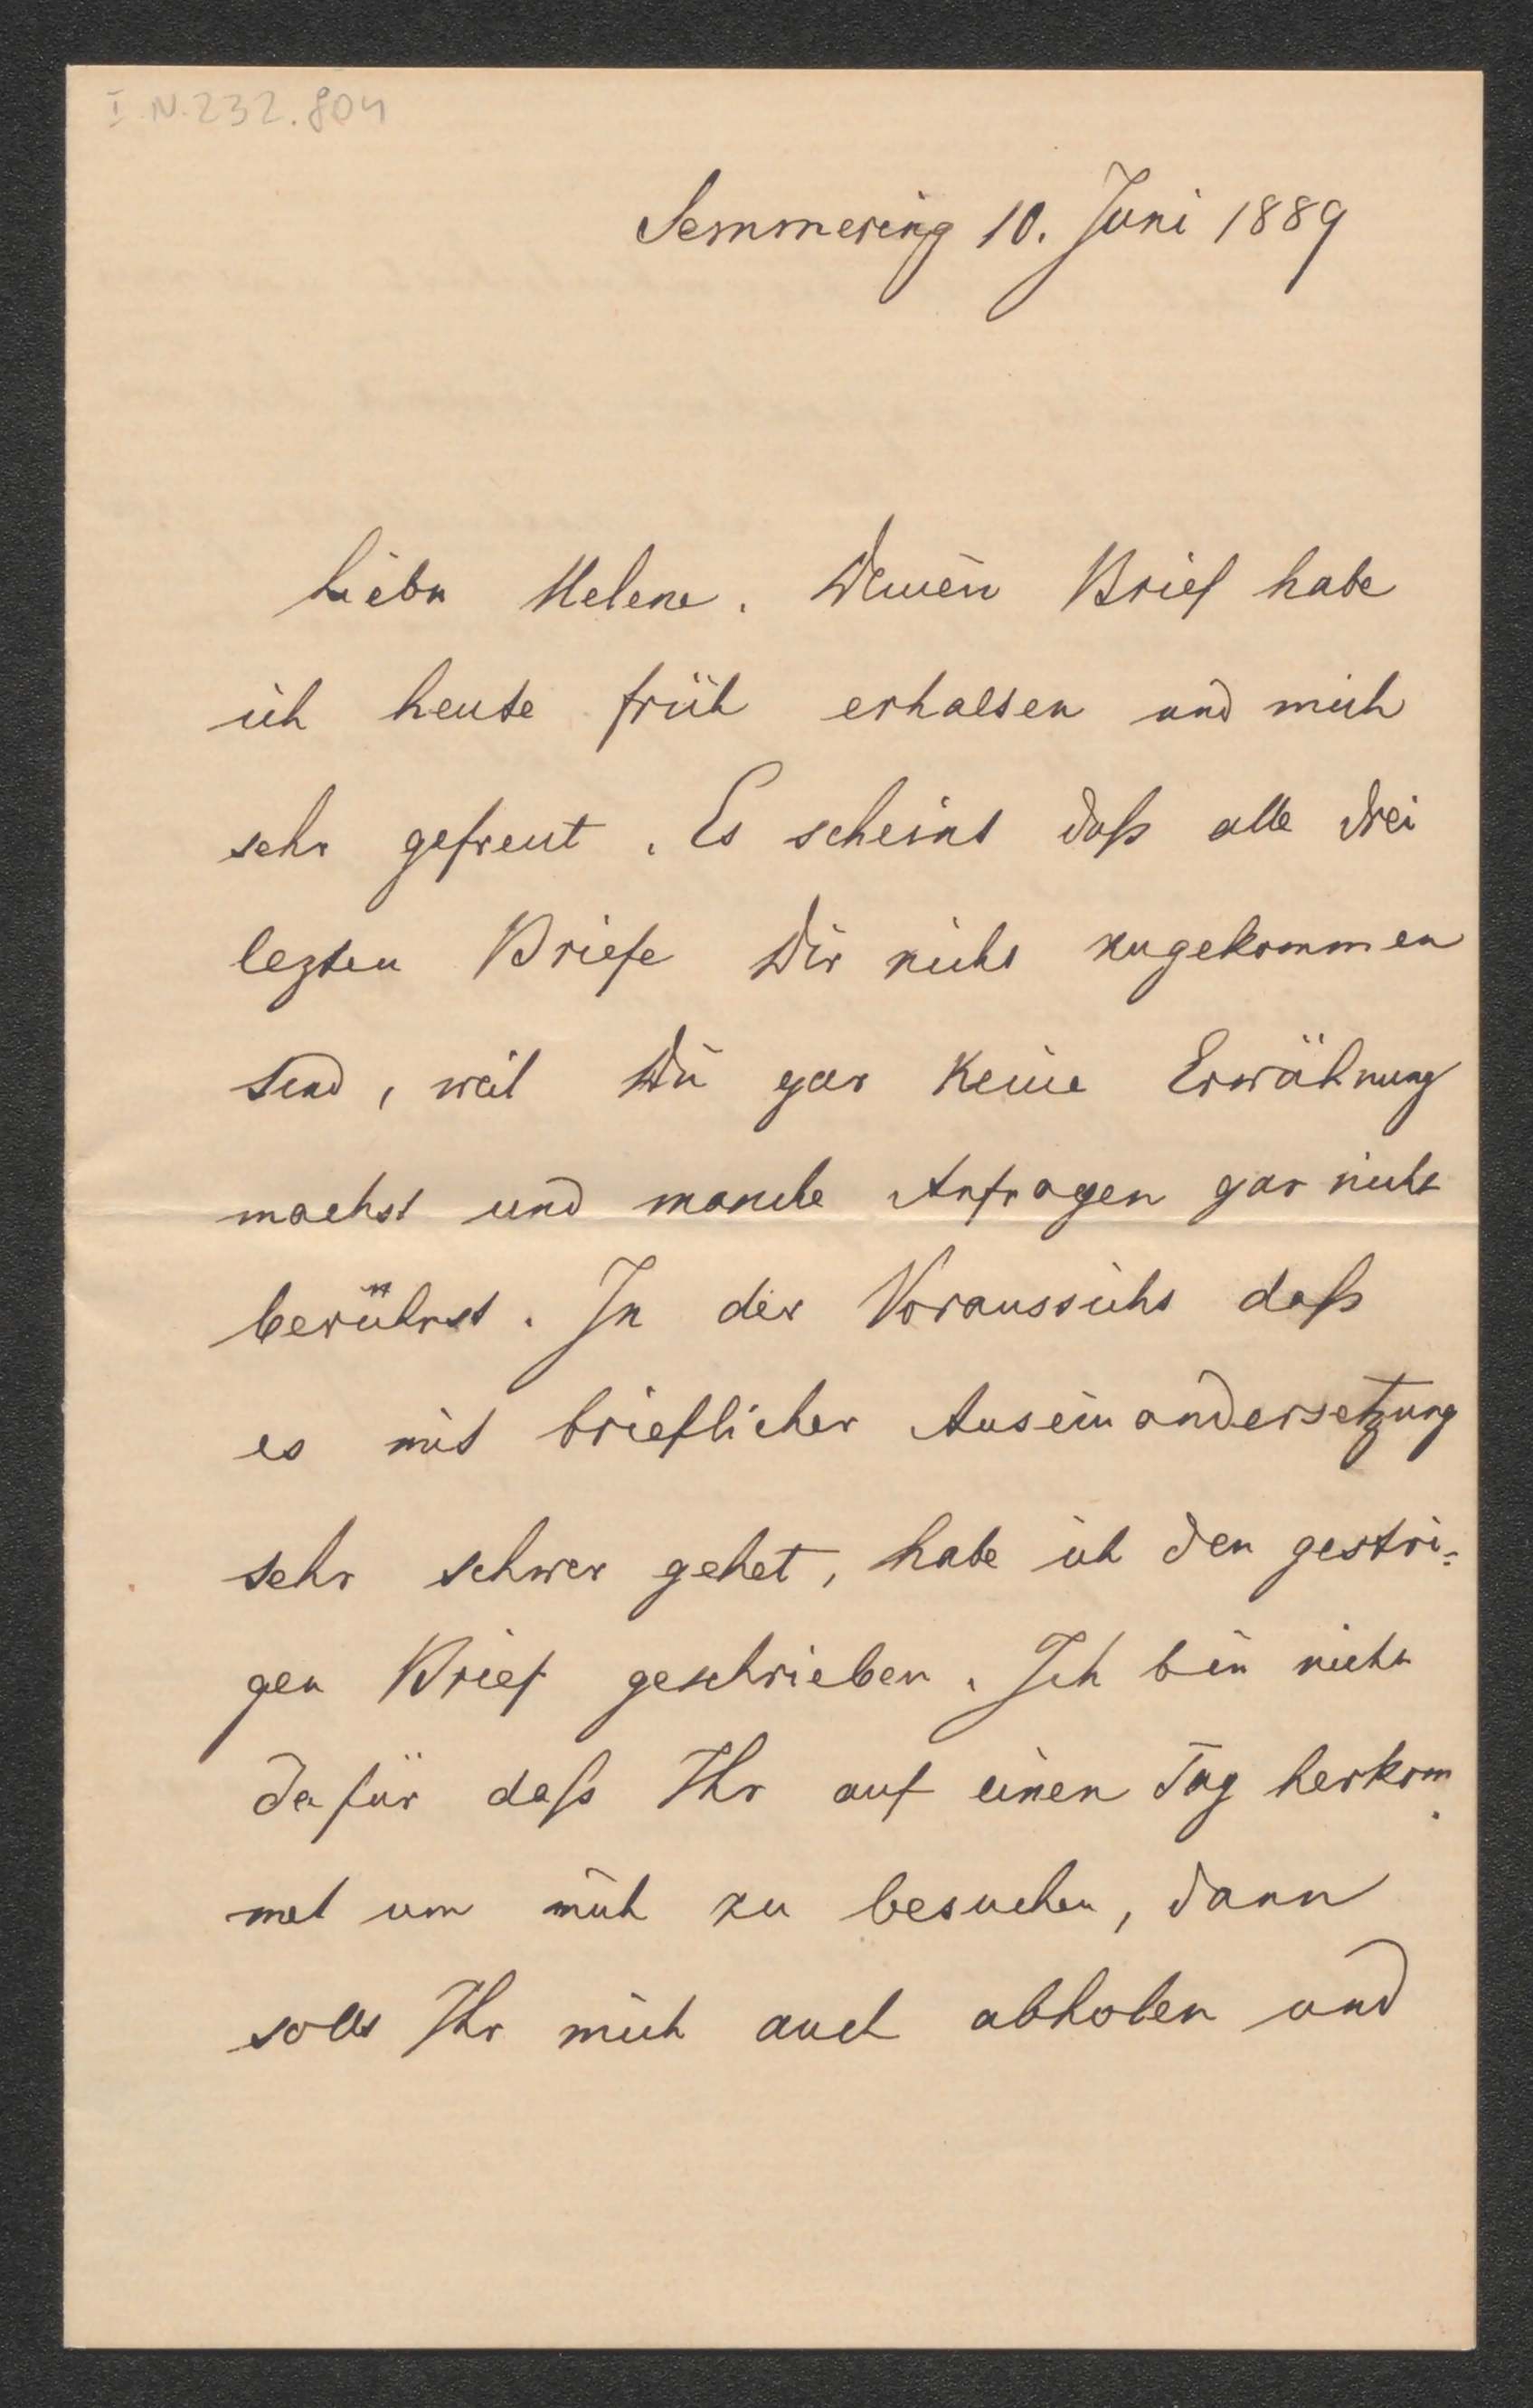 I.N.232.804
Semmering 10. Juni 1889
Liebe Helene. Deinen Brief habe
ich heute früh erhalten und mich
sehr gefreut. Es scheint daß alle drei
lezten Briefe Dir nicht zugekommen
sind, weil Du gar keine Erwähnung
machst und manche Anfragen gar nicht
berührst. In der Voraussicht daß
es mit brieflicher Auseinandersetzung
sehr schwer gehet, habe ich den gestri=
gen Brief geschrieben. Ich bin nicht
dafür daß Ihr auf einen Tag herkom
met um mich zu besuchen, dann
sollt Ihr mich auch abholen und